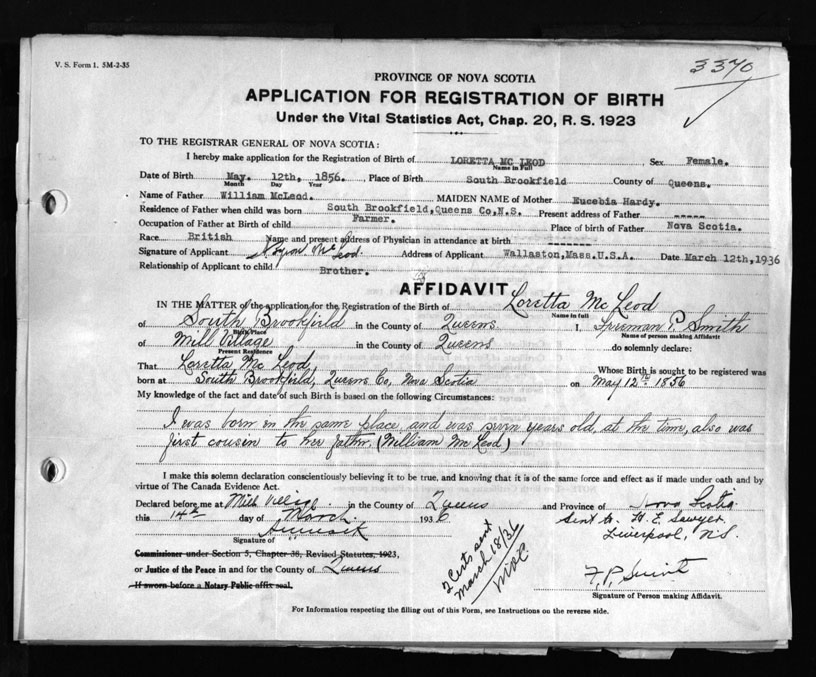 V. S. Form 1. 5M-2-35
3370
PROVINCE OF NOVA SCOTIA
APPLICATION FOR REGISTRATION OF BIRTH
Under the Vital Statistics Act, Chap. 20, R. S. 1923
TO THE REGISTRAR GENERAL OF NOVA SCOTIA:
I hereby make application for the Registration of Birth of LORETTA MC LEOD Sex Female.
Name in Full
Date of Birth May. 12th, 1856. Place of Birth South Brookfield County of Queens.
Month Day Year
Name of Father William McLeod. MAIDEN NAME of Mother Eucebia Hardy.
Residence of Father when child was born South Brookfield,Queens Co,N.S. Present address of Father -----
Occupation of Father at Birth of child Farmer. Place of birth of Father Nova Scotia.
Race British Name and present address of Physician in attendance at birth --------
Signature of Applicant Mc Leod. Address of Applicant Wallaston,Mass.U.S.A. Date March 12th,1936
Relationship of Applicant to child Brother.
AFFIDAVIT
IN THE MATTER of the application for the Registration of the Birth of Loretta Mc Leod
Name in full
of South Brookfield in the County of Queens I, Freeman P. Smith
Birth Place Name of person making Affidavit
of Mill Village in the County of Queens do solemnly declare:
Present Residence
That Loretta Mc Leod, Whose Birth is sought to be registered was
born at South Brookfield, Queens Co, Nova Scotia on May 12th 1856
My knowledge of the fact and date of such Birth is based on the following Circumstances:
I was born in the same place and was seven years old, at the time, also was
first cousin to her father. (William Mc Leod)
I make this solemn declaration conscientiously believing it to be true, and knowing that it is of the same force and effect as if made under oath and by
virtue of The Canada Evidence Act.
Declared before me at Mill Village in the County of Queens and Province of Nova Scotia
this 14th day of March 1936
Sent to H. E. Sawyer,
Liverpool, N.S.
Signature of
Commissioner under Section 5, Chapter 38, Revised Statutes, 1923,
or Justice of the Peace in and for the County of Queens
If sworn before a Notary Public affix seal.
2 Certs sent
March 18/36
F. P. Smith
Signature of Person making Affidavit.
For Information respecting the filling out of this Form, see Instructions on the reverse side.